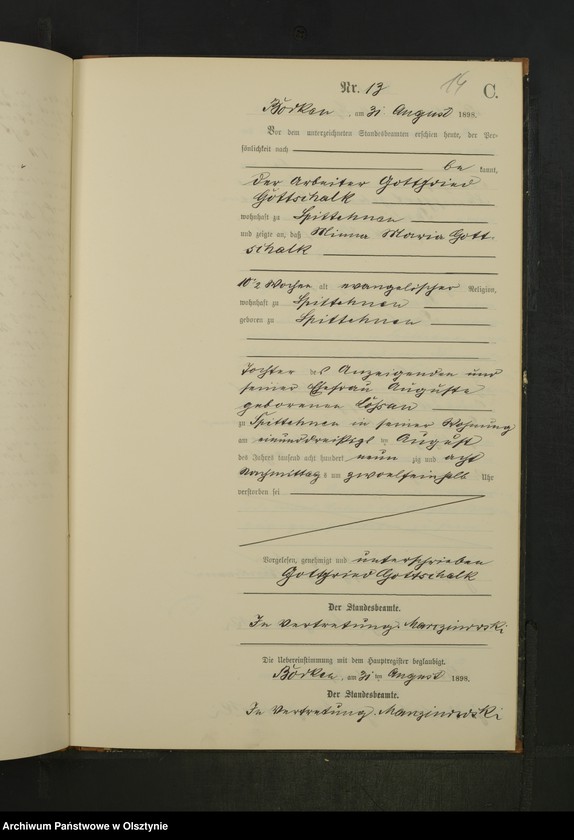 Nr. 13
14
C.
Borken, am 31 August 1898.
Vor dem unterzeichneten Standesbeamten erschien heute, der Per-
sönlichkeit nach
be kannt,
der Arbeiter Gottfried
Gottschalk
wohnhaft zu Spittehnen
und zeigte an, daß Minna Maria Gott-
schalk
10 1/2 Wochen alt evangelischer Religion,
wohnhaft zu Spittehnen
geboren zu Spittehnen
Tochter des Anzeigenden und
seiner Ehefrau Auguste
geborenen
zu Spittehnen in seiner Wohnung
am einunddreißigst en August
des Jahres tausend acht hundert neun zig und acht
Nachmittags um zwoelfeinhalb Uhr
verstorben sei
Vorgelesen, genehmigt und unterschrieben
Gottfried Gottschalk
Der Standesbeamte.
In Vertretung. Marczinowski
Die Uebereinstimmung mit dem Hauptregister beglaubigt.
Borken, am 31 ten August 1898.
Der Standesbeamte.
In Vertretung. Marczinowski
Archiwum Państwowe w Olsztynie